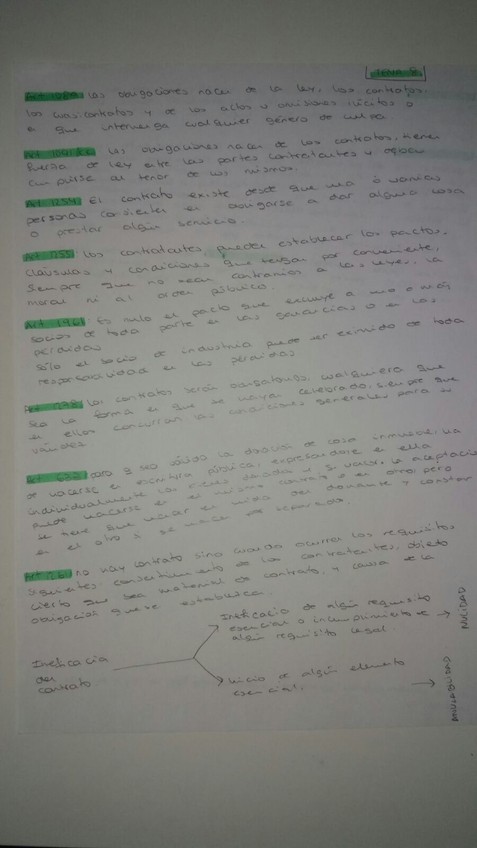 TEMA 8
Art 1089: Las obligaciones nacen de la ley, los contratos,
los cuasicontratos y de los actos u omisiones ilícitos o
e que intervenga cualquier género de culpa.
las obligaciones nacen de los contratos, tienen
fuerza de ley entre las partes contratantes y deben
cumplirse al tenor de los mismos.
Art 1254: El contrato existe desde que una o varias
personas consienten en obligarse a dar alguna cosa
o prestar algún servicio.
Art 1255: Los contratantes pueden establecer los pactos,
cláusulas y condiciones que tengan por conveniente,
siempre que no sean contrarios a las leyes, la
moral ni al orden público.
Art 1691: Es nulo el pacto que excluye a uno o más
socios de toda parte en las ganancias o en las
pérdidas
Sólo el socio de industria puede ser eximido de toda
responsabilidad en las pérdidas
Art 1278: Los contratos serán obligatorios, cualquiera que
sea la forma en que se hayan celebrado, siempre que
en ellos concurran las condiciones generales para su
validez
Art 632: para q sea válida la donación de cosa inmueble, ha
de hacerse en escritura pública, expresándose en ella
individualmente los bienes donados y el valor, la aceptación
puede hacerse en el mismo contrato o en otro, pero
se tiene que hacer en vida del donante y constar
en el otro si se hace por separado.
no hay contrato sino cuando ocurren los requisitos
siguientes, consentimiento de los contratantes, objeto
cierto que sea material de contrato, y causa de la
obligación que se establezca.
Ineficacia
del
contrato
Ineficacia de algún requisito
esencial o incumplimiento de
algún requisito legal.
NULIDAD
Vicio de algún elemento
esencial.
ANULABILIDAD